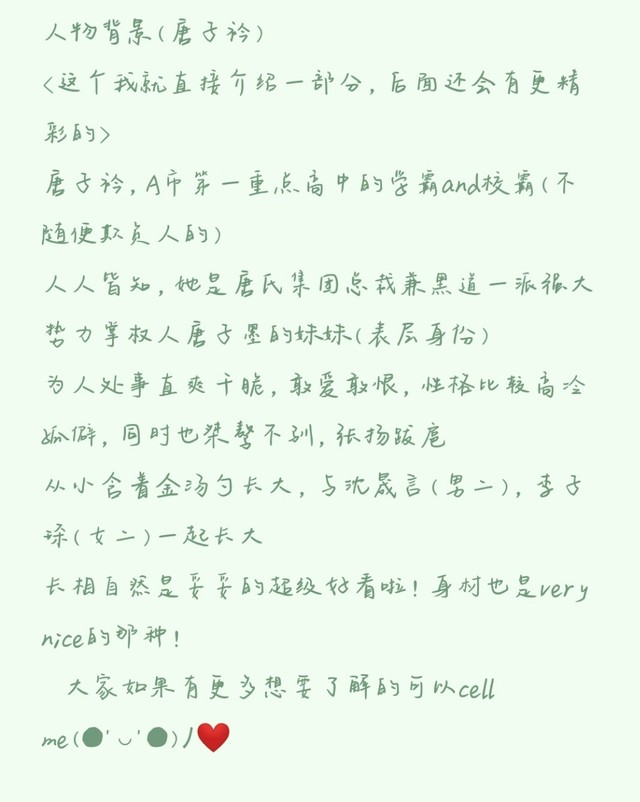 人物背景(唐子衿)
<这个我就直接介绍一部分,后面还会有更精
彩的>
唐子衿,A市第一重点高中的学霸and校霸(不
随便欺负人的)
人人皆知,她是唐氏集团总裁兼黑道一派强大
势力掌权人唐子墨的妹妹(表层身份)
为人处事直爽干脆,敢爱敢恨,性格比较高冷
孤僻,同时也桀骜不驯,张扬跋扈
从小含着金汤勺长大,与沈晟言(男二),李子
琛(女二)一起长大
长相自然是妥妥的超级好看啦!身材也是very
nice的那种!
大家如果有更多想要了解的可以cell
me(●'◡'●)ﾉ❤️